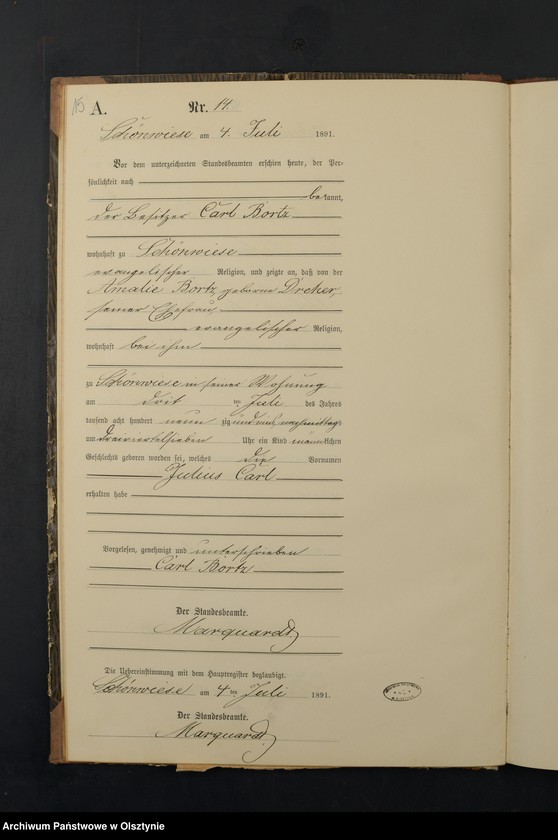 15 A. Nr. 14.
Schönwiese am 4. Juli 1891.
Vor dem unterzeichneten Standesbeamten erschien heute, der Per-
sönlichkeit nach
bekannt,
der Besitzer Carl Bortz
wohnhaft zu Schönwiese
evangelischer Religion, und zeigte an, daß von der
Amalie Bortz, geborne Dreher,
seiner Ehefrau,
evangelischer Religion,
wohnhaft bei ihm
zu Schönwiese in seiner Wohnung
am drit ten Juli des Jahres
tausend acht hundert neun zig und eins, nachmittags
um dreiviertelsieben Uhr ein Kind männlichen
Geschlechts geboren worden sei, welches die Vornamen
Julius Carl
erhalten habe
Vorgelesen, genehmigt und unterschrieben
Carl Bortz
Der Standesbeamte.
Marquardt
Die Uebereinstimmung mit dem Hauptregister beglaubigt.
Schönwiese am 4 ten Juli 1891.
Der Standesbeamte.
Marquardt.
Archiwum Państwowe w Olsztynie